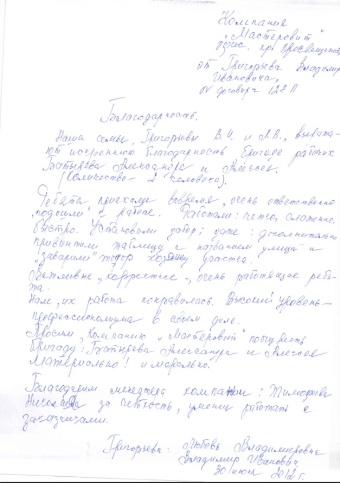 Компания
"Мастеровит"
офис. пр. Просвещения
от Григорьева Владимира
Ивановича,
№ договора 122П
Благодарность.
Наша семья, Григорьевы В.И. и Л.В., выража-
ют искреннюю благодарность бригаде рабочих
Батырева Александра и Алексея.
(Количество - 2 человека).
Ребята приехали вовремя, очень ответственно
"подошли" к работе. Работали: четко, слаженно,
быстро. Установили забор; даже: дополнительно
привинтили таблицу с названием улицы и
"заварили" участка.
Вежливые, корректные, очень работящие ребя-
та.
Нам, их работа понравилась. Высокий уровень -
профессионализма в своем деле.
Просим, компанию "Мастеровит" поощрить
бригаду: Батырева Александра и Алексея
Материально! и морально.
Благодарим менеджера компании: Тимофеева
за четкость, умение работать с
заказчиками.
Григорьевы: Любовь Владимировна
Владимир Иванович
30 июля 2012 г.